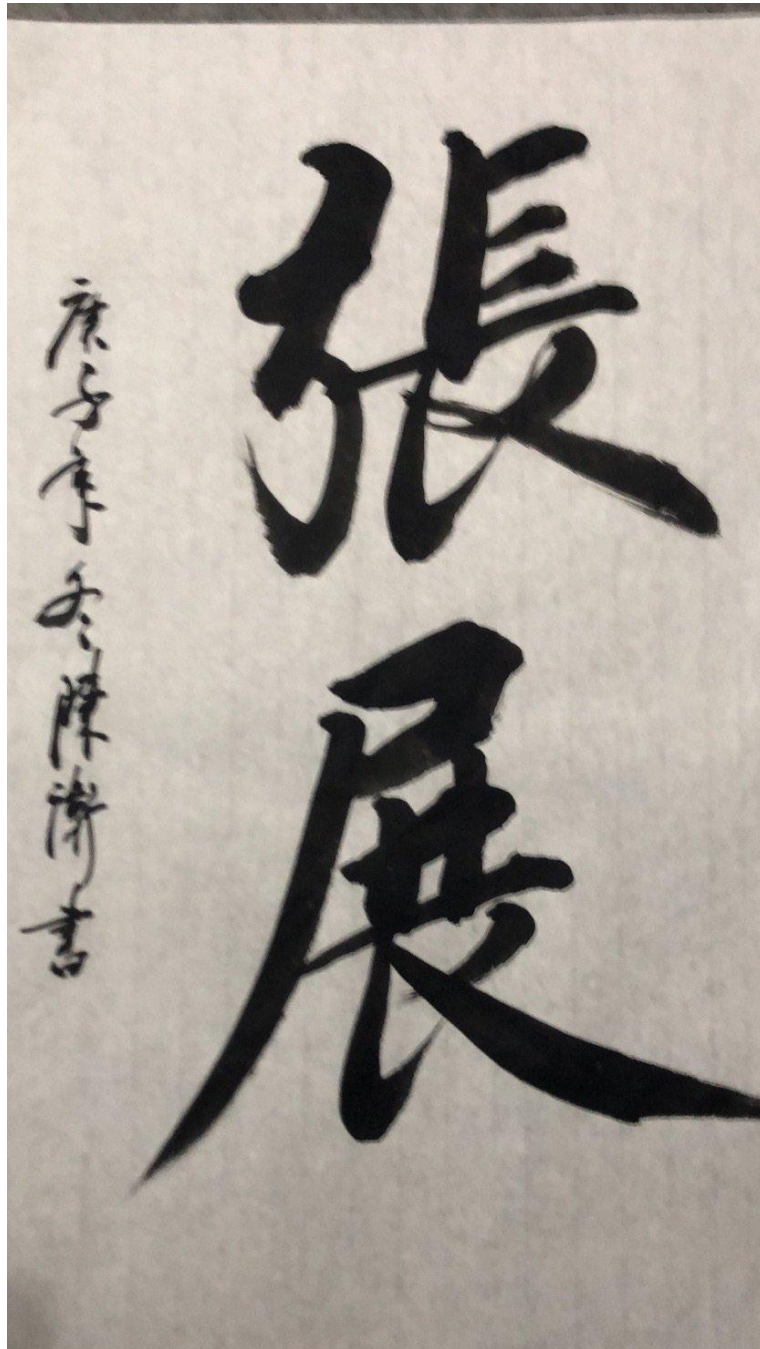 張展
庚子年冬陳謝書